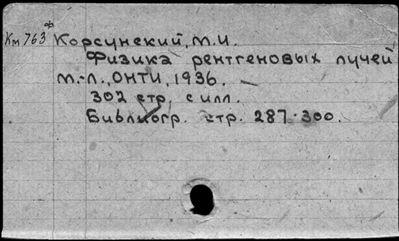 ф
Км 763 Корсунский, М.И.
Физика рентгеновых лучей
М.-Л., ОНТИ, 1936.
302 стр, с илл.
Библиогр. стр. 287-300.